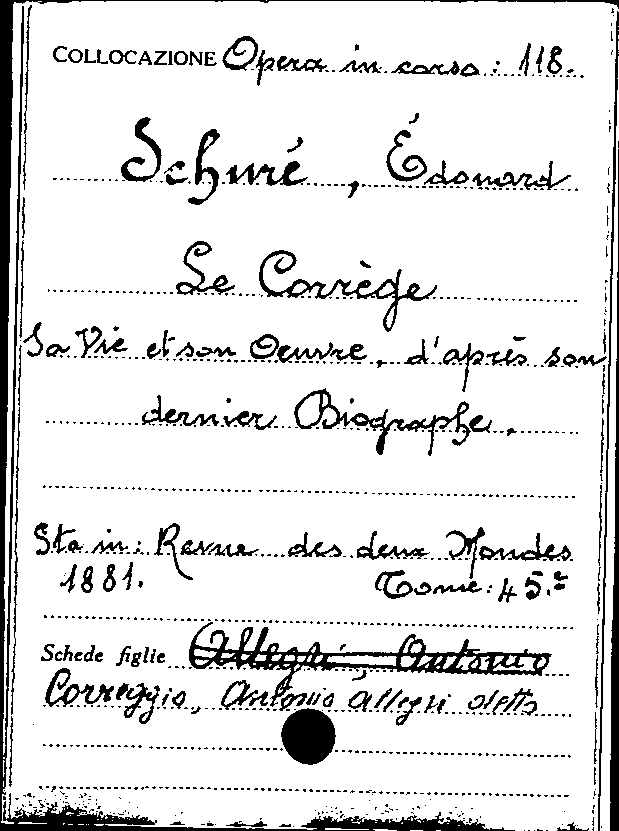 COLLOCAZIONE Opera in corso: 118.
Schuré, Édouard
Le Corrège
Sa Vie et son Oeuvre, d'après son
dernier Biographe.
Sta in: Revue des deux Mondes
1881. Tome: 45.º
Schede figlie Allegri, Antonio
Correggio, Antonio Allegri detto